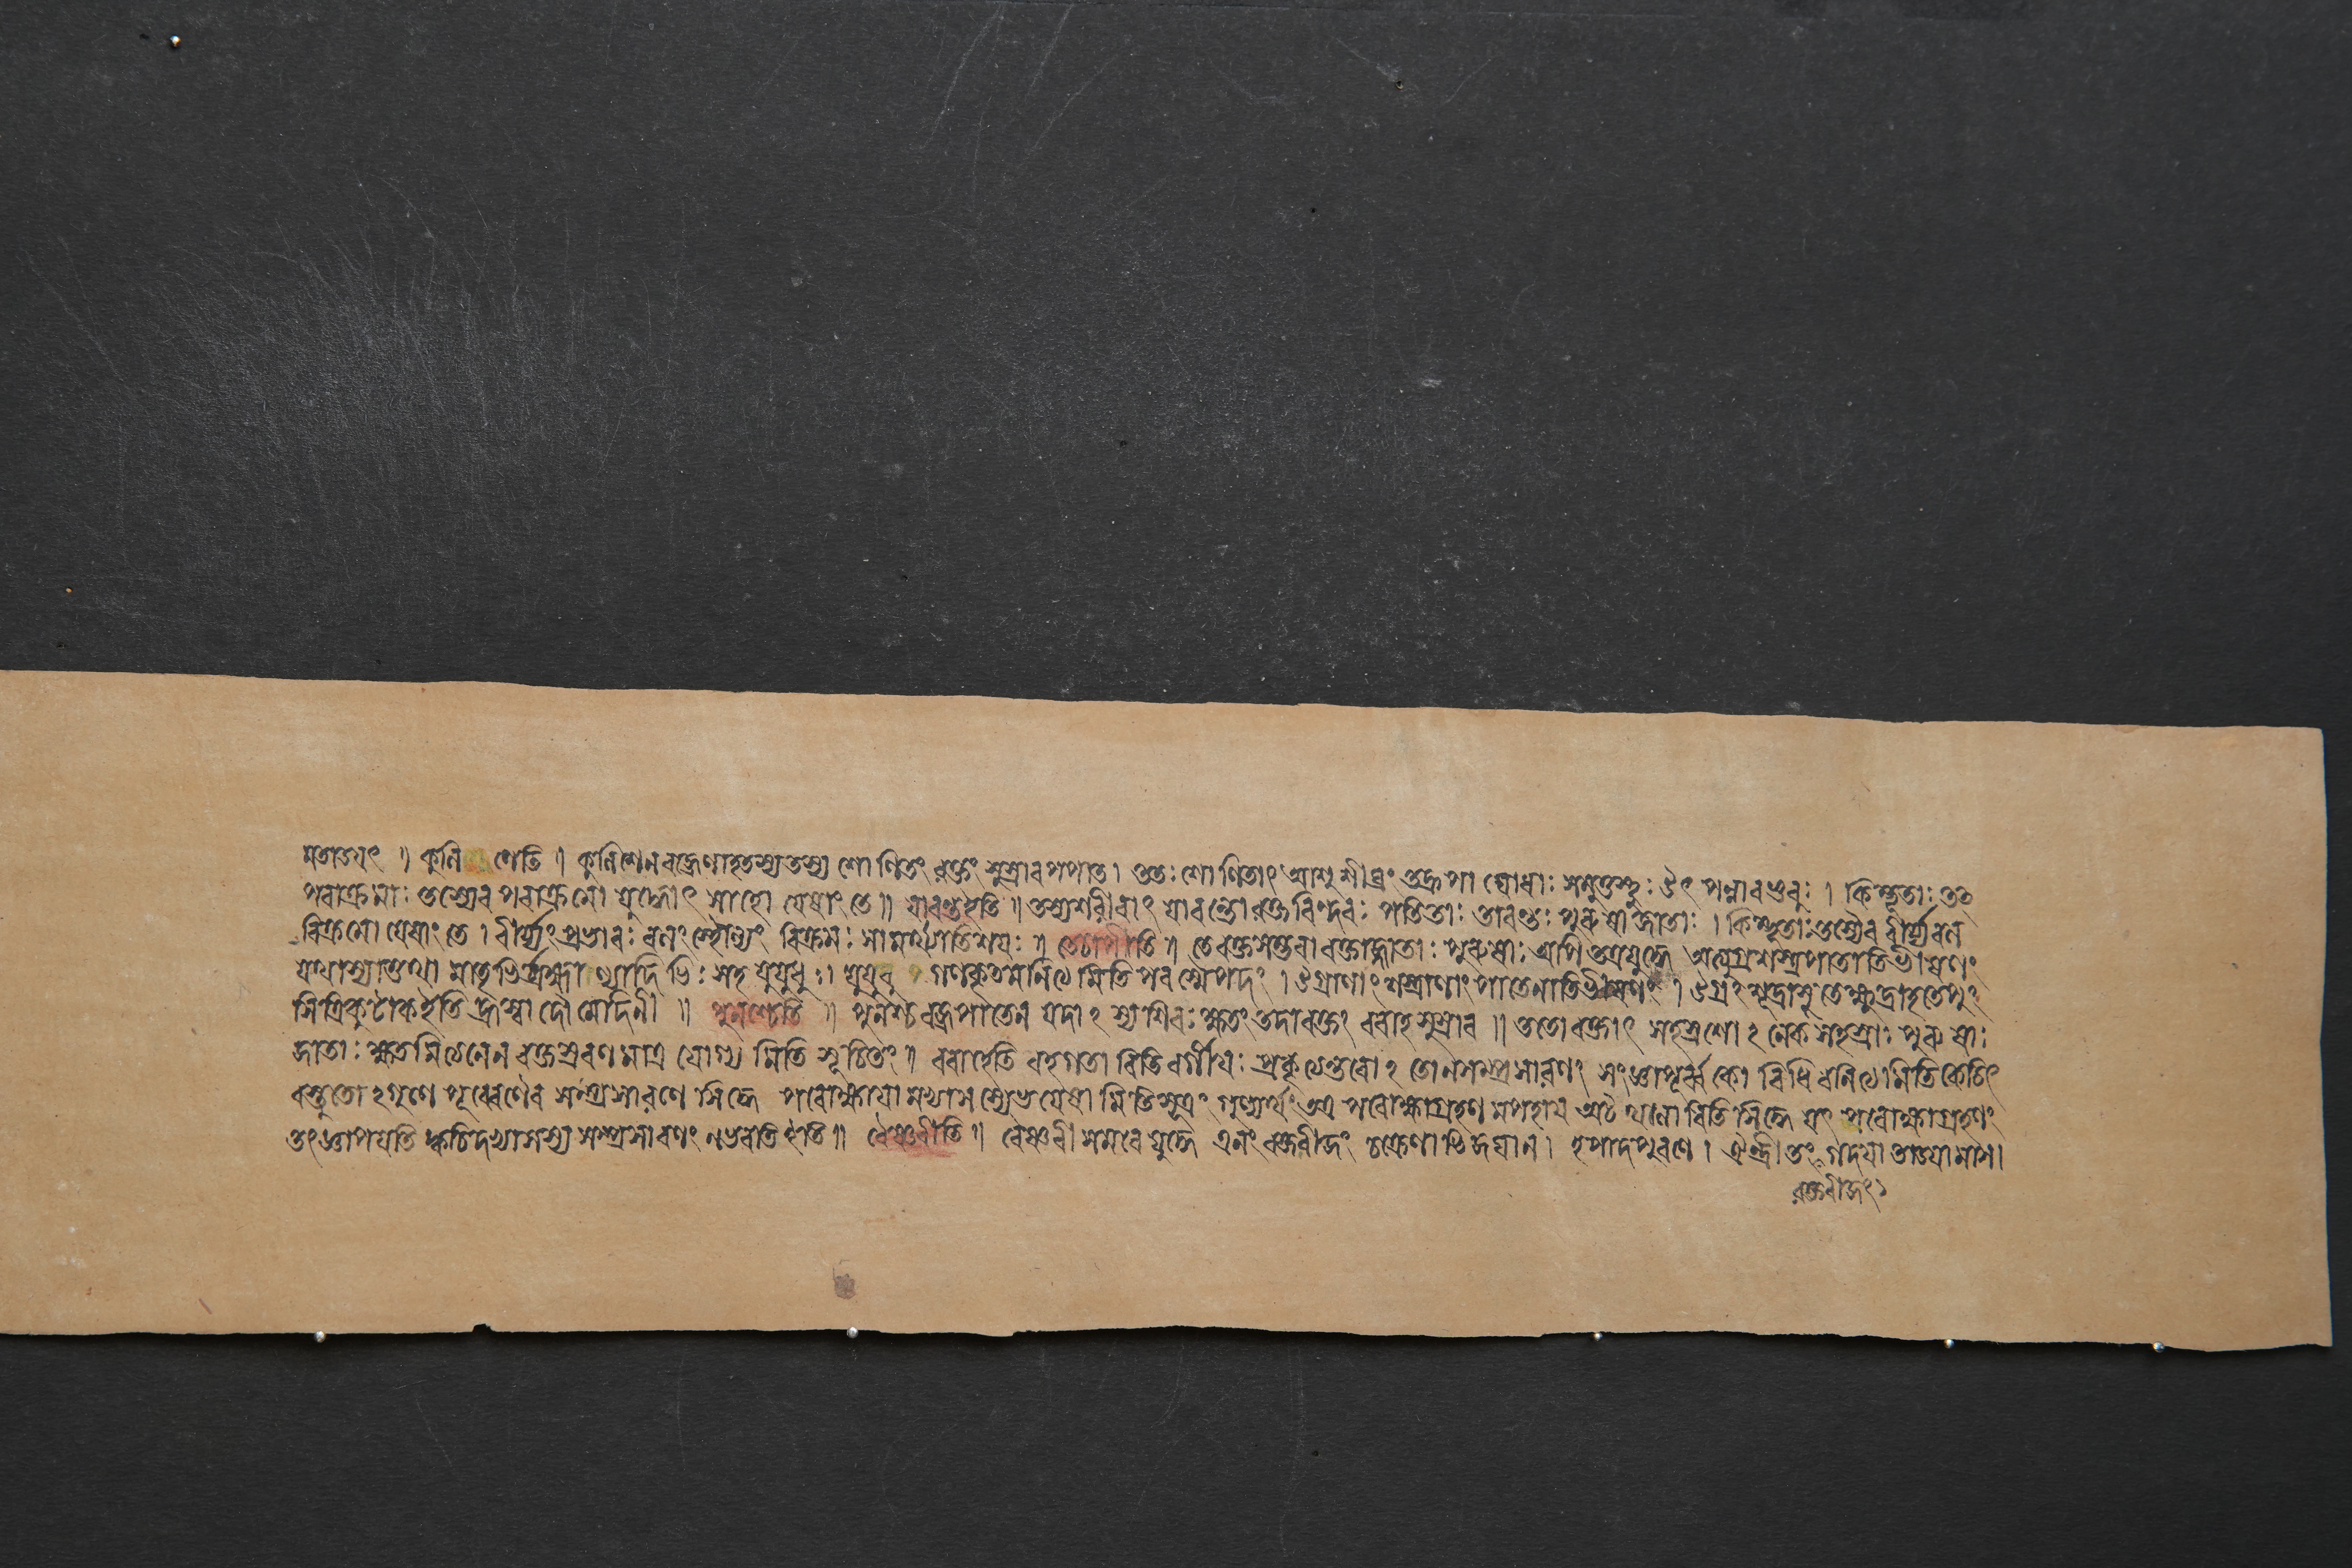 মতাড়য়ৎ ॥ কুলিশেতি ॥ কুলিশেনবজ্রেণাহতস্যতস্য শোণিতং ৰক্তং সুস্রাবপপাত। ততঃ শোণিতাৎ আশুশীঘ্রং তদ্রূপা যোধাঃ সমুত্তস্থুঃ উৎপন্নাবভুবুঃ । কিম্ভূতাঃ তৎ
পৰাক্রমাঃ তস্যেব পৰাক্রমো যুদ্ধোৎসাহো যেষাং তে॥ যাবন্তইতি ॥ তস্যশৰীৰাৎ যাবন্তোৰক্তবিন্দবঃ পতিতাঃ তাবন্তঃ পুৰুষাজাতাঃ । কিম্ভূতাঃতস্যৈব বীর্য্যবল
বিক্রমো যেষাং তে । বীর্য্যংপ্রভাবঃ বলংস্থৌল্যং বিক্রমঃ সামর্থ্যাতিশয়ঃ ॥ তেচাপীতি ॥ তেৰক্তসম্ভবা ৰক্তাজ্জাতাঃ পুৰুষাঃ অপি তত্রযুদ্ধে অত্যুগ্রশস্ত্রপাতাতিভীষণং
যথাস্যাত্তথা মাতৃভির্ব্রহ্মাণ্যাদিভিঃ সহ যুযুধুঃ। যুযুধু গণকৃতমনিত্যমিতি পৰস্মৈপদং । উগ্রাণাং শস্ত্রাণাং পাতেনাতিভীষণং । উগ্রঃ শূদ্রাসুতেক্ষুদ্রাদ্রূতেপুং
সিত্রিকুটাকইতি হ্রস্বাদৌ মোদিনী ॥ পুনশ্চেতি ॥ পুনশ্চবজ্রপাতেন যদাঽস্যশিৰঃ ক্ষতং তদাৰক্তং ববাহসুস্রাব ॥ ততোৰক্তাৎ সহস্রশোঽনেকসহস্রাঃ পুৰুষাঃ
জাতাঃ ক্ষতমিত্যনেন ৰক্তস্রবণমাত্র যোগ্য মিতি সূচিতং ॥ ববাহেতি বহগতা বিতি বর্গীয়ঃ প্রকৃত্যন্তৰোঽতোনসম্প্রসাৰণং সংজ্ঞাপূর্ব্বকো বিধিৰনিত্যমিতিকেচিৎ
বস্তুতোঽগুণে পূর্ব্বেণৈব সম্প্রসাৰণে সিদ্ধে পৰোক্ষায়ামভ্যাসস্যেভয়েষামিতিসূত্রং গুণ্যর্থং তত্র পৰোক্ষাগ্রহণমপহায় অট্ থলাবিতি সিদ্ধে যৎ পৰোক্ষাগ্রহণং
তৎজ্ঞাপয়তি ক্বচিদভ্যাসস্য সম্প্রসাৰণং নভবতি ইতি॥ বৈষ্ণবীতি ॥ বৈষ্ণবী সমৰেযুদ্ধে এনং ৰক্তবীজং চক্রেণাভিজঘান । হপাদপুৰণে । ঐন্দ্রী তং গদয়া তাড়য়ামাস।
ৰক্তবীজং১